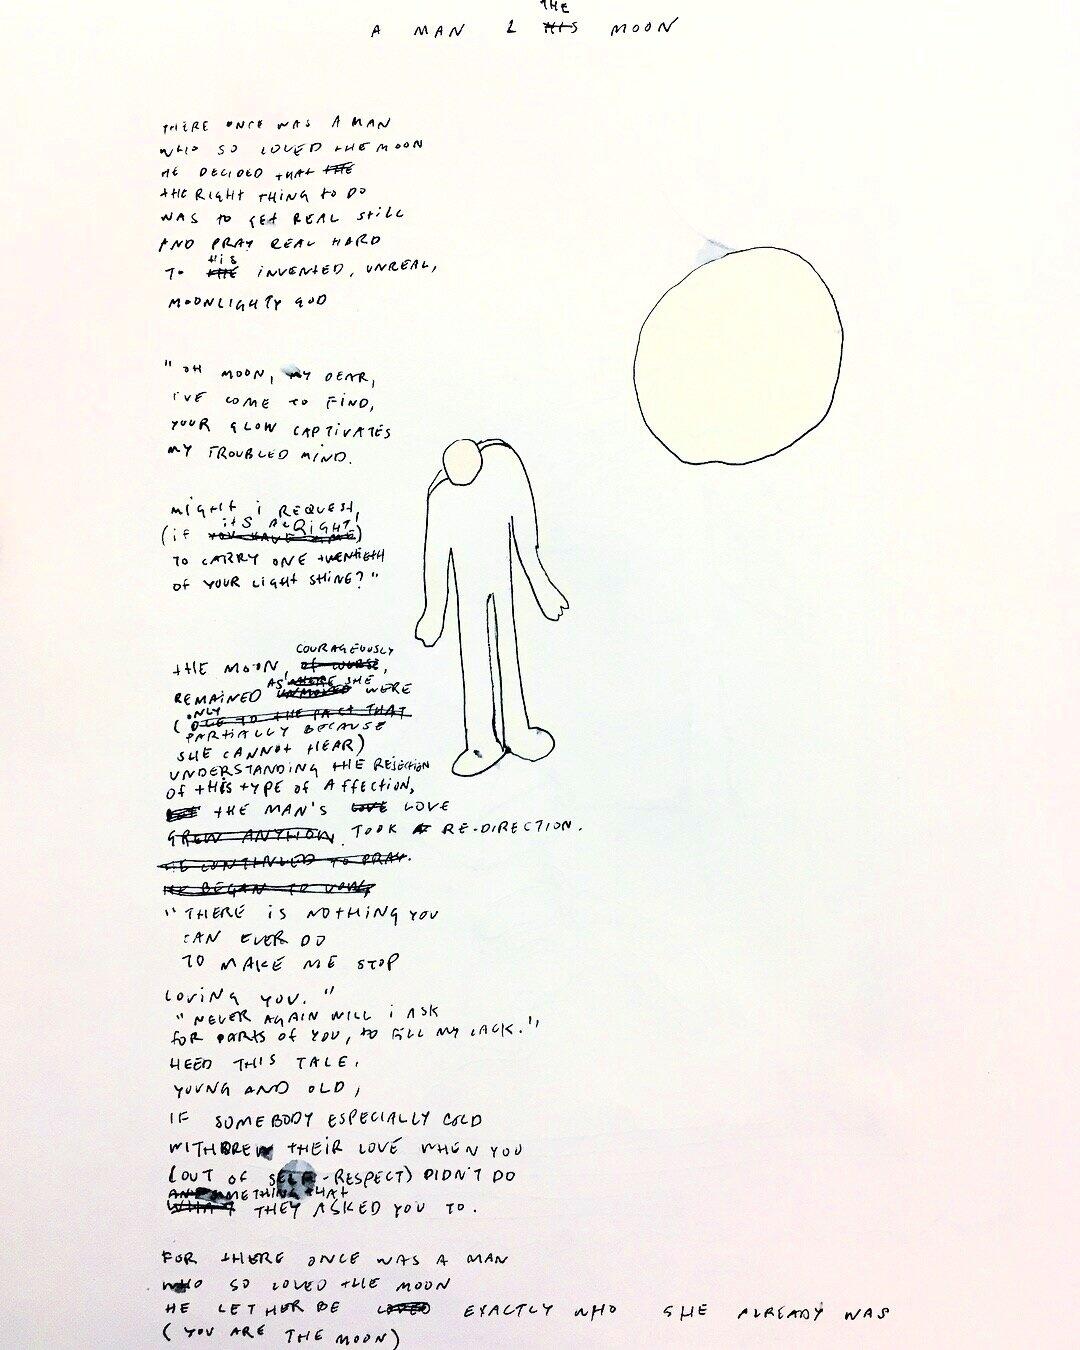 THE
A MAN & HIS MOON
THERE ONCE WAS A MAN
WHO SO LOVED THE MOON
HE DECIDED THAT THE
THE RIGHT THING TO DO
WAS TO GET REAL STILL
AND PRAY REAL HARD
HIS
TO THE INVENTED, UNREAL,
MOONLIGHTY GOD
"OH MOON, MY DEAR,
I'VE COME TO FIND,
YOUR GLOW CAPTIVATES
MY TROUBLED MIND.
MIGHT I REQUEST,
IT'S ALRIGHT
(IF YOU HAVE TIME)
TO CARRY ONE TWENTIETH
OF YOUR LIGHT SHINE?"
COURAGEOUSLY
THE MOON, OF COURSE,
AS WHERE SHE
REMAINED UNMOVED WERE
ONLY
(DUE TO THE FACT THAT
PARTIALLY BECAUSE
SHE CANNOT HEAR)
UNDERSTANDING THE REJECTION
OF THIS TYPE OF AFFECTION,
THE MAN'S LOVE LOVE
GREW ANYHOW. TOOK A RE-DIRECTION.
HE CONTINUED TO PRAY.
HE BEGAN TO VOW,
"THERE IS NOTHING YOU
CAN EVER DO
TO MAKE ME STOP
LOVING YOU."
"NEVER AGAIN WILL I ASK
FOR PARTS OF YOU, TO FILL MY LACK."
HEED THIS TALE,
YOUNG AND OLD,
IF SOMEBODY ESPECIALLY COLD
WITHDREW THEIR LOVE WHEN YOU
(OUT OF SELF-RESPECT) DIDN'T DO
SOMETHING THAT
WHAT THEY ASKED YOU TO.
FOR THERE ONCE WAS A MAN
WHO SO LOVED THE MOON
HE LET HER BE LOVED EXACTLY WHO SHE ALREADY WAS
(YOU ARE THE MOON)